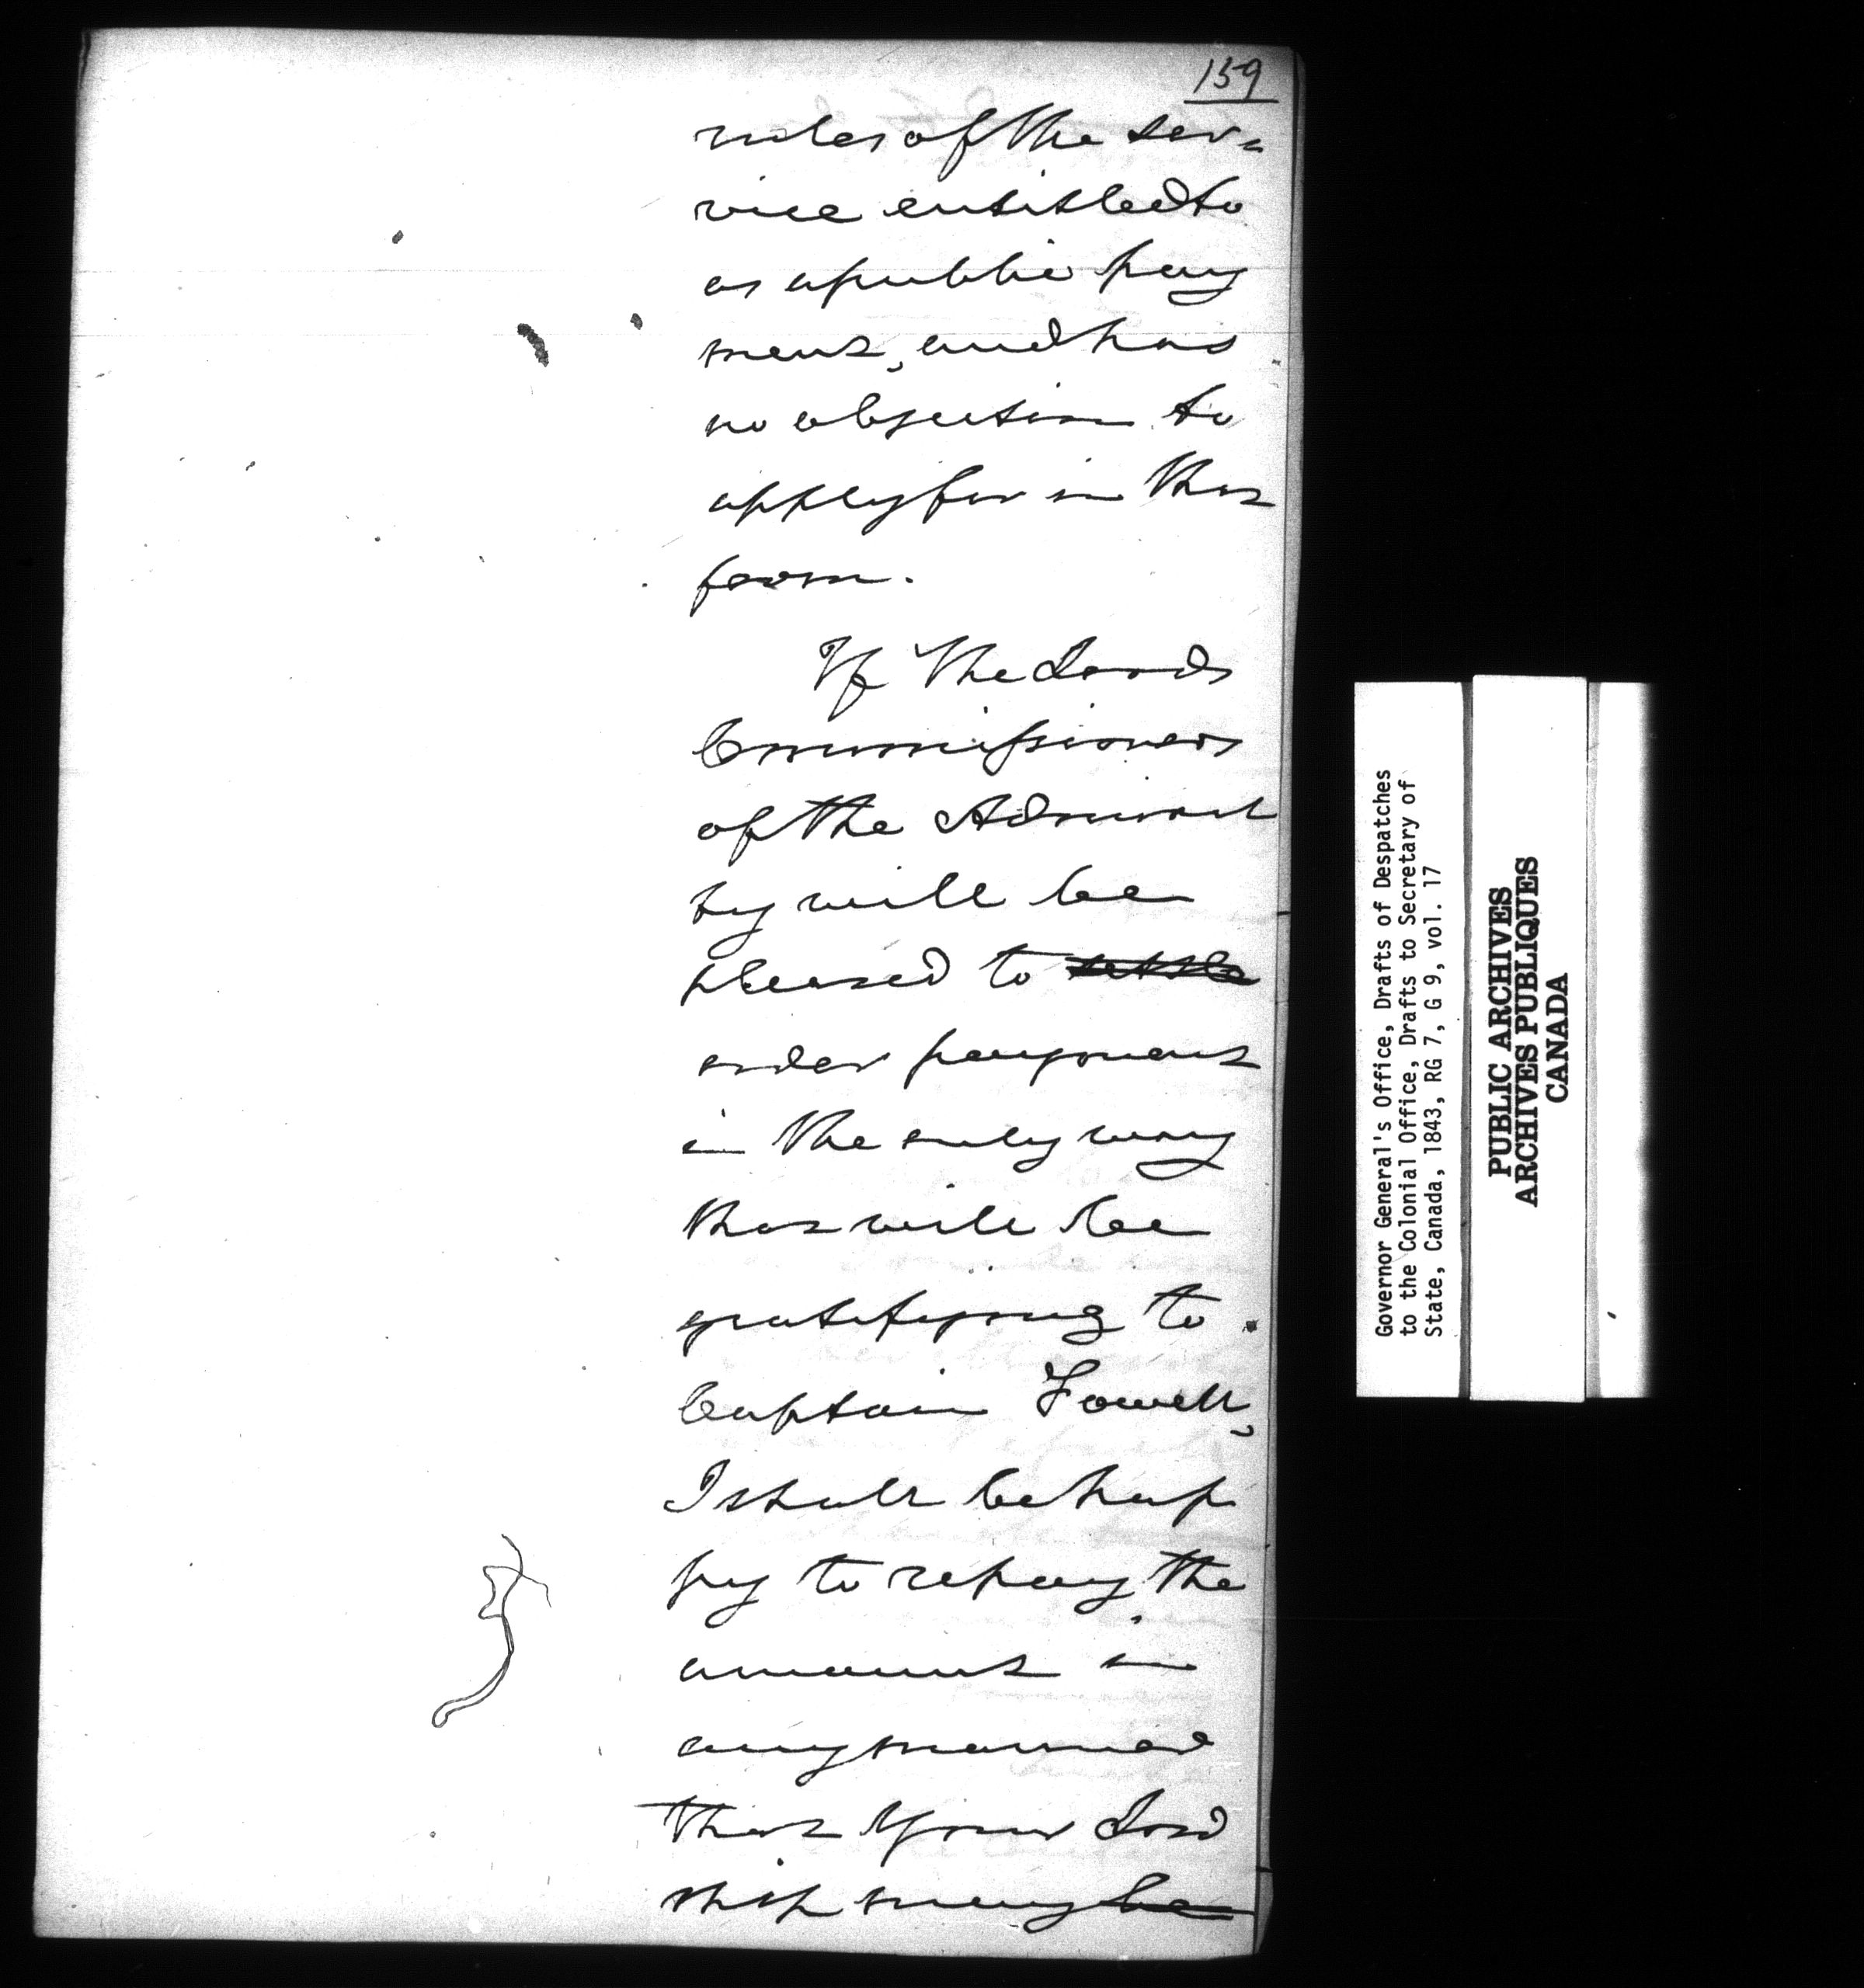 159
rules of the ser=
vice entitled to
as a public pay
ment, and has
no objection to
apply for in that
form.
If the Lords
Commissioners
of the Admiral
ty will be
pleased to settle
order payment
in the only way
that will be
gratifying to
Captain Fowell,
I shall be hap
py to repay the
amount in
any manner
that Your Lord
ship may be
Governor General's Office, Drafts of Despatches
to the Colonial Office, Drafts to Secretary of
State, Canada, 1843, RG 7, G 9, vol. 17
PUBLIC ARCHIVES
ARCHIVES PUBLIQUES
CANADA